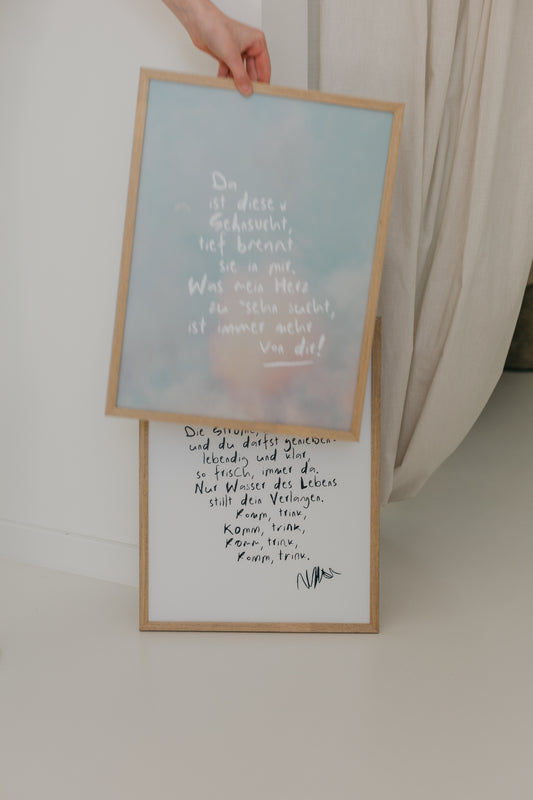 Da
ist diese
Sehnsucht,
tief brennt
sie in mir.
Was mein Herz
zu 'sehn sucht,
ist immer mehr
von dir!
Die Ströme,
und du darfst genießen.
lebendig und klar,
so frisch, immer da.
Nur Wasser des Lebens
stillt dein Verlangen.
Komm, trink,
Komm, trink,
Komm, trink,
Komm, trink.